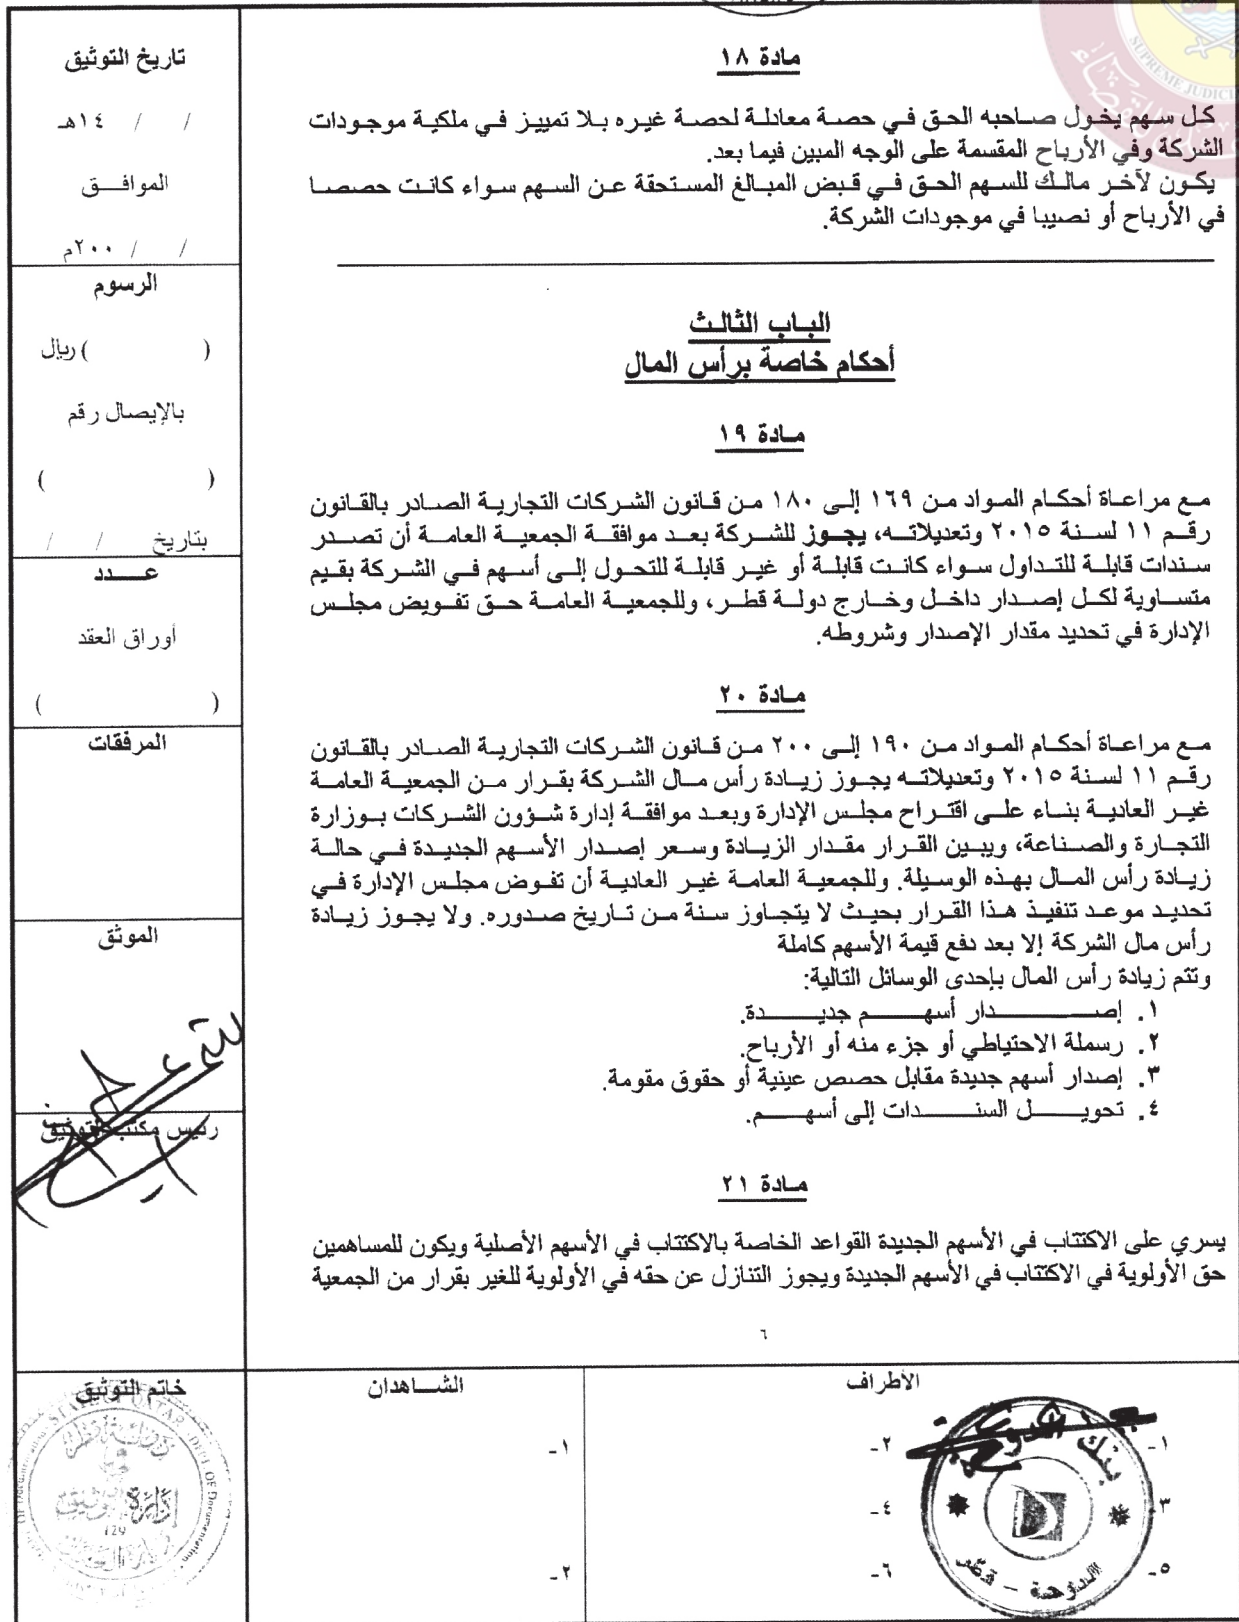 SUPREME JUDICI
مادة ١٨
كل سهم يخول صاحبه الحق في حصة معادلة لحصة غيره بلا تمييز في ملكية موجودات
الشركة وفي الأرباح المقسمة على الوجه المبين فيما بعد.
يكون لآخر مالك للسهم الحق في قبض المبالغ المستحقة عن السهم سواء كانت حصصا
في الأرباح أو نصيبا في موجودات الشركة.
الباب الثالث
أحكام خاصة برأس المال
مادة ١٩
مع مراعاة أحكام المواد من ١٦٩ إلى ١٨٠ من قانون الشركات التجارية الصادر بالقانون
رقم ١١ لسنة ٢٠١٥ وتعديلاته، يجوز للشركة بعد موافقة الجمعية العامة أن تصدر
سندات قابلة للتداول سواء كانت قابلة أو غير قابلة للتحول إلى أسهم في الشركة بقيم
متساوية لكل إصدار داخل وخارج دولة قطر، وللجمعية العامة حق تفويض مجلس
الإدارة في تحديد مقدار الإصدار وشروطه.
مادة ٢٠
مع مراعاة أحكام المواد من ١٩٠ إلى ٢٠٠ من قانون الشركات التجارية الصادر بالقانون
رقم ١١ لسنة ٢٠١٥ وتعديلاته يجوز زيادة رأس مال الشركة بقرار من الجمعية العامة
غير العادية بناء على اقتراح مجلس الإدارة وبعد موافقة إدارة شؤون الشركات بوزارة
التجارة والصناعة، ويبين القرار مقدار الزيادة وسعر إصدار الأسهم الجديدة في حالة
زيادة رأس المال بهذه الوسيلة. وللجمعية العامة غير العادية أن تفوض مجلس الإدارة في
تحديد موعد تنفيذ هذا القرار بحيث لا يتجاوز سنة من تاريخ صدوره. ولا يجوز زيادة
رأس مال الشركة إلا بعد دفع قيمة الأسهم كاملة
وتتم زيادة رأس المال بإحدى الوسائل التالية:
١. إصدار أسهم جديدة.
٢. رسملة الاحتياطي أو جزء منه أو الأرباح.
٣. إصدار أسهم جديدة مقابل حصص عينية أو حقوق مقومة.
٤. تحويل السندات إلى أسهم.
مادة ٢١
يسري على الاكتتاب في الأسهم الجديدة القواعد الخاصة بالاكتتاب في الأسهم الأصلية ويكون للمساهمين
حق الأولوية في الاكتتاب في الأسهم الجديدة ويجوز التنازل عن حقه في الأولوية للغير بقرار من الجمعية
٦
تاريخ التوثيق
/ / ١٤هـ
الموافق
/ / ٢٠٠م
الرسوم
( ) ريال
بالإيصال رقم
( )
بتاريخ / /
عدد
أوراق العقد
( )
المرفقات
الموثق
رئيس مكتب التوثيق
الأطراف
١- ٢-
٣- ٤-
٥- ٦-
بنك الدوحة
الدوحة - قطر
الشاهدان
١-
٢-
خاتم التوثيق
STATE OF QATAR
DEPT. OF Documentation
إدارة التوثيق
129